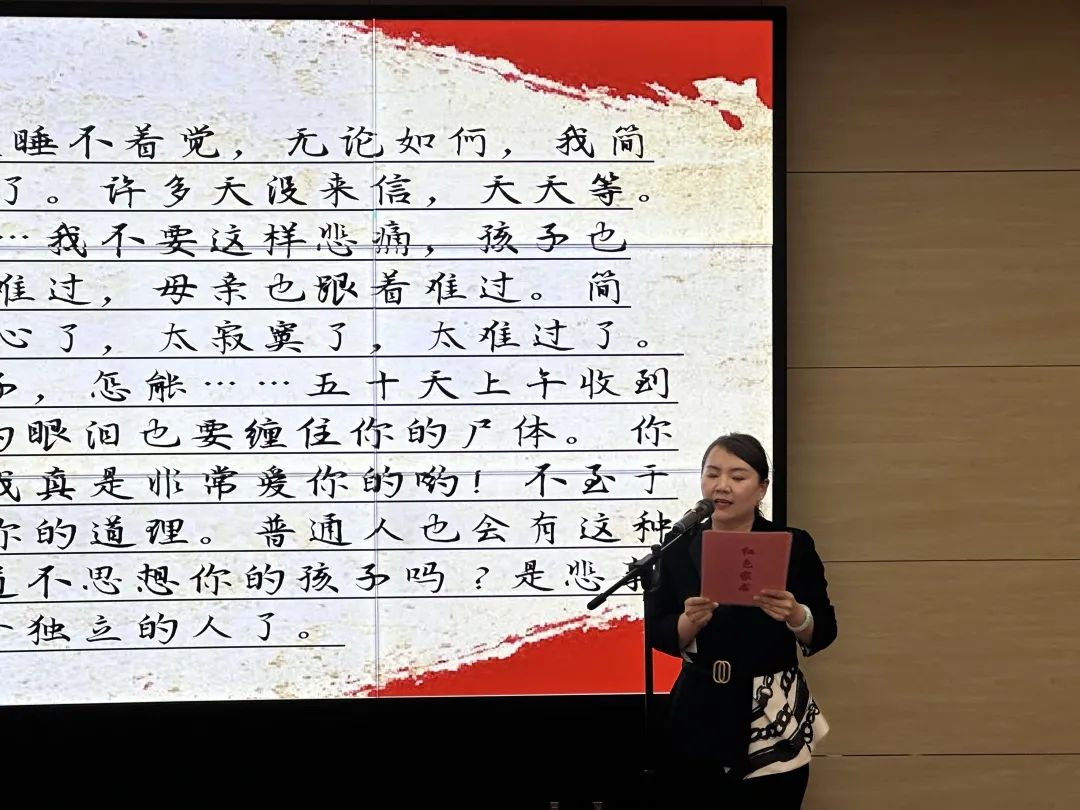 睡不着觉，无论如何，我简
了。许多天没来信，天天等。
…我不要这样悲痛，孩子也
难过，母亲也跟着难过。简
心了，太寂寞了，太难过了。
，怎能……五十天上午收到
的眼泪也要缠住你的尸体。你
我真是非常爱你的哟！不至于
你的道理。普通人也会有这种
不思想你的孩子吗？是悲
个独立的人了。
红色家书